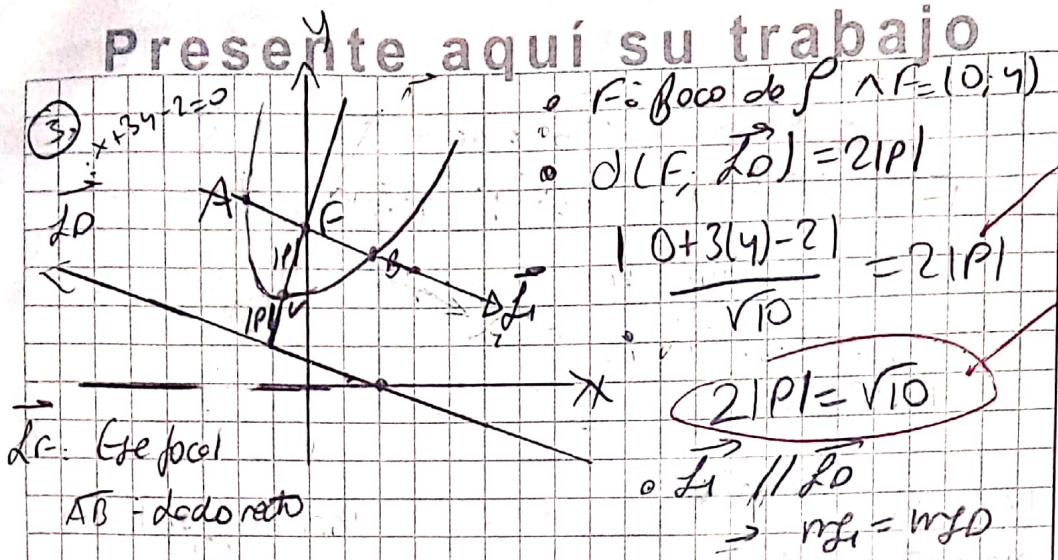 Presente aquí su trabajo
y
3.
x+3y-2=0
LD
A
F
|P|
B
L1
|P|
V
X
LF: Eje focal
AB - Lado recto
• F: foco de P ∧ F=(0;4)
• d(F, LD) = 2|P|
|0+3(4)-2| / √10 = 2|P|
2|P| = √10
• L1 // LD
⇒ mL1 = mLD